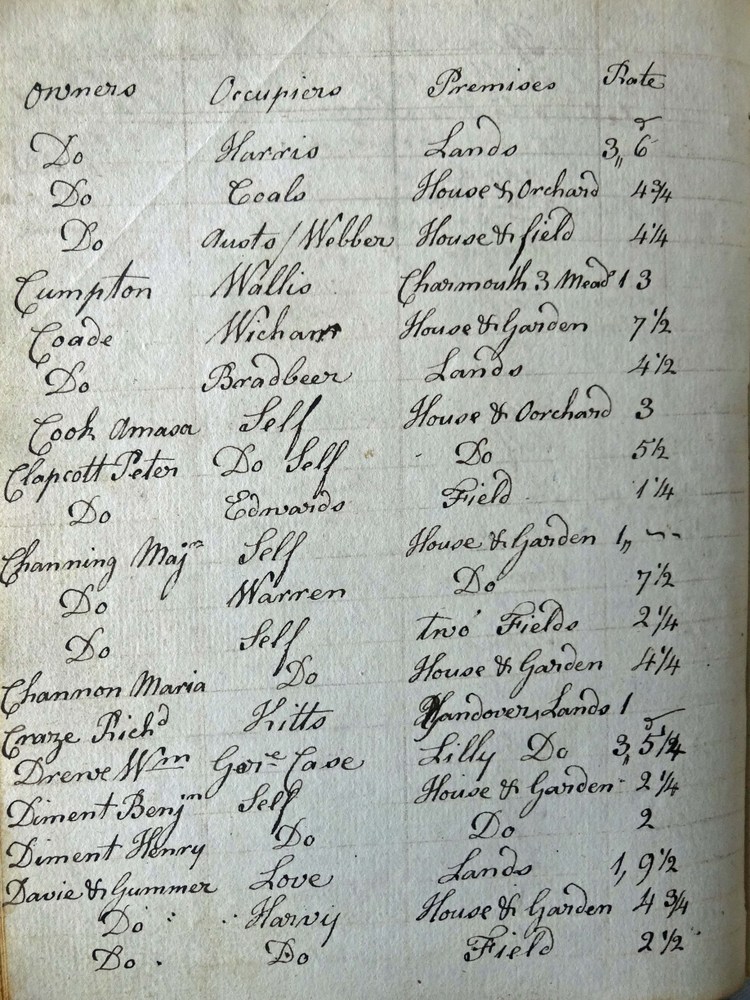 Owners Occupiers Premises Rate
Do Harris Lands 3,, 6
Do Coals House & Orchard 4 3/4
Do Austs / Webber House & field 4 1/4
Cumpton Wallis Charmouth 3 Mead 1 3
Coade Wicham House & Garden 7 1/2
Do Bradbeer Lands 4 1/2
Cook Amasa Self House & Oorchard 3
Clapcott Peter Do Self Do 5 1/2
Do Edwards Field 1 1/4
Channing Majr Self House & Garden 1,, --
Do Warren Do 7 1/2
Do Self two Fields 2 1/4
Channon Maria Do House & Garden 4 1/4
Craze Richd Kitts Handover Lands 1
Drewe Wm Case Lilly Do 3,, 5 1/4
Diment Benjn Self House & Garden 2 1/4
Diment Henry Do Do 2
Davie & Gummer Love Lands 1, 9 1/2
Do Harvy House & Garden 4 3/4
Do Do Field 2 1/2